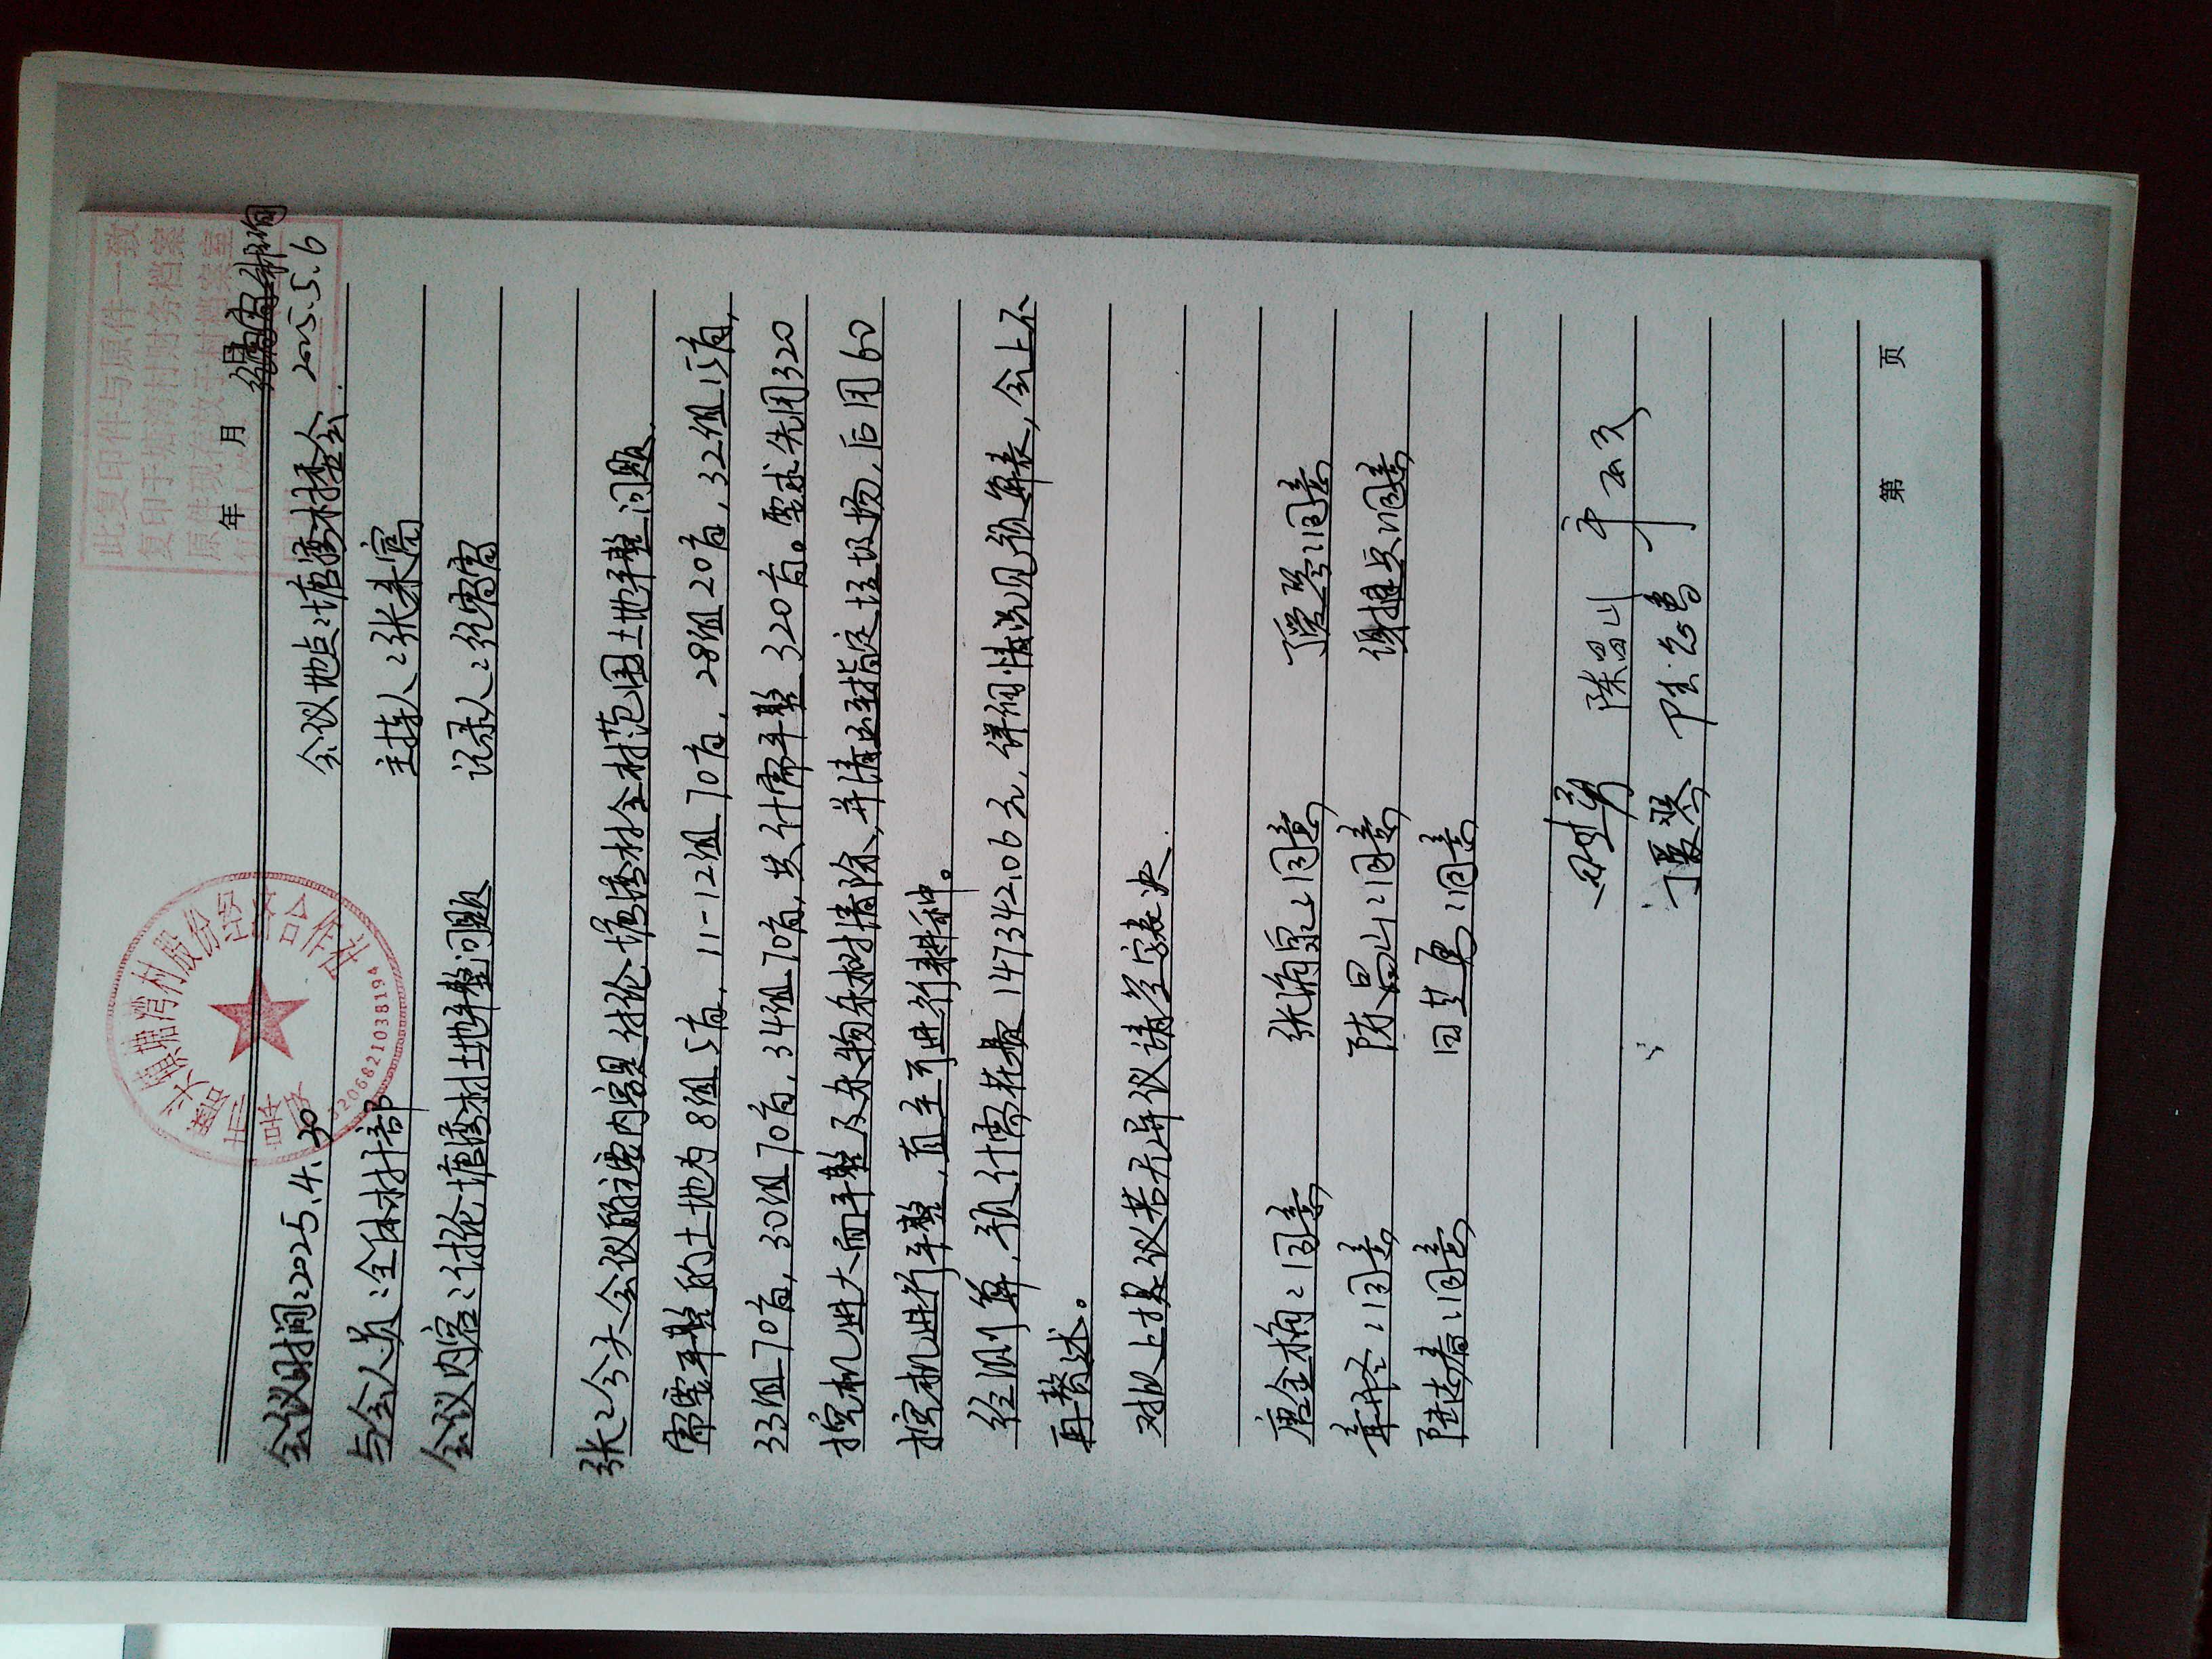 此复印件与原件一致
复印于塘湾村财务档案
原件现存放于村档案室
年 月
2025.5.6
会议时间:2025.4.30 会议地点:塘湾村委会
与会人员:全体村干部 主持人:张来富
会议内容:讨论塘湾村土地平整问题 记录人:
磨头镇塘湾村股份经济合作社
3206821038194
张:今天会议的议内容是讨论塘湾村全村范围土地平整问题.
需要平整的土地为8组5亩,11-12组70亩,28组20亩,32组15亩,
33组70亩,30组70亩,34组70亩,共计需平整320亩。要求先用320
挖机进大面平整及杂物杂树清除,并清运到指定垃圾场,后用60
挖机进行平整,直至可进行耕种。
经测算,预计需花费147342.06元,详细情况见预算表,会上不
再赘述。
对以上提议若无异议请签字表决.
唐金柄:同意 张海泉:同意 丁爱琴:同意
章:同意 陈昌山:同意 谢拥兵:同意
陆春:同意 田芝勇:同意
陈昌山
丁爱琴
第 页